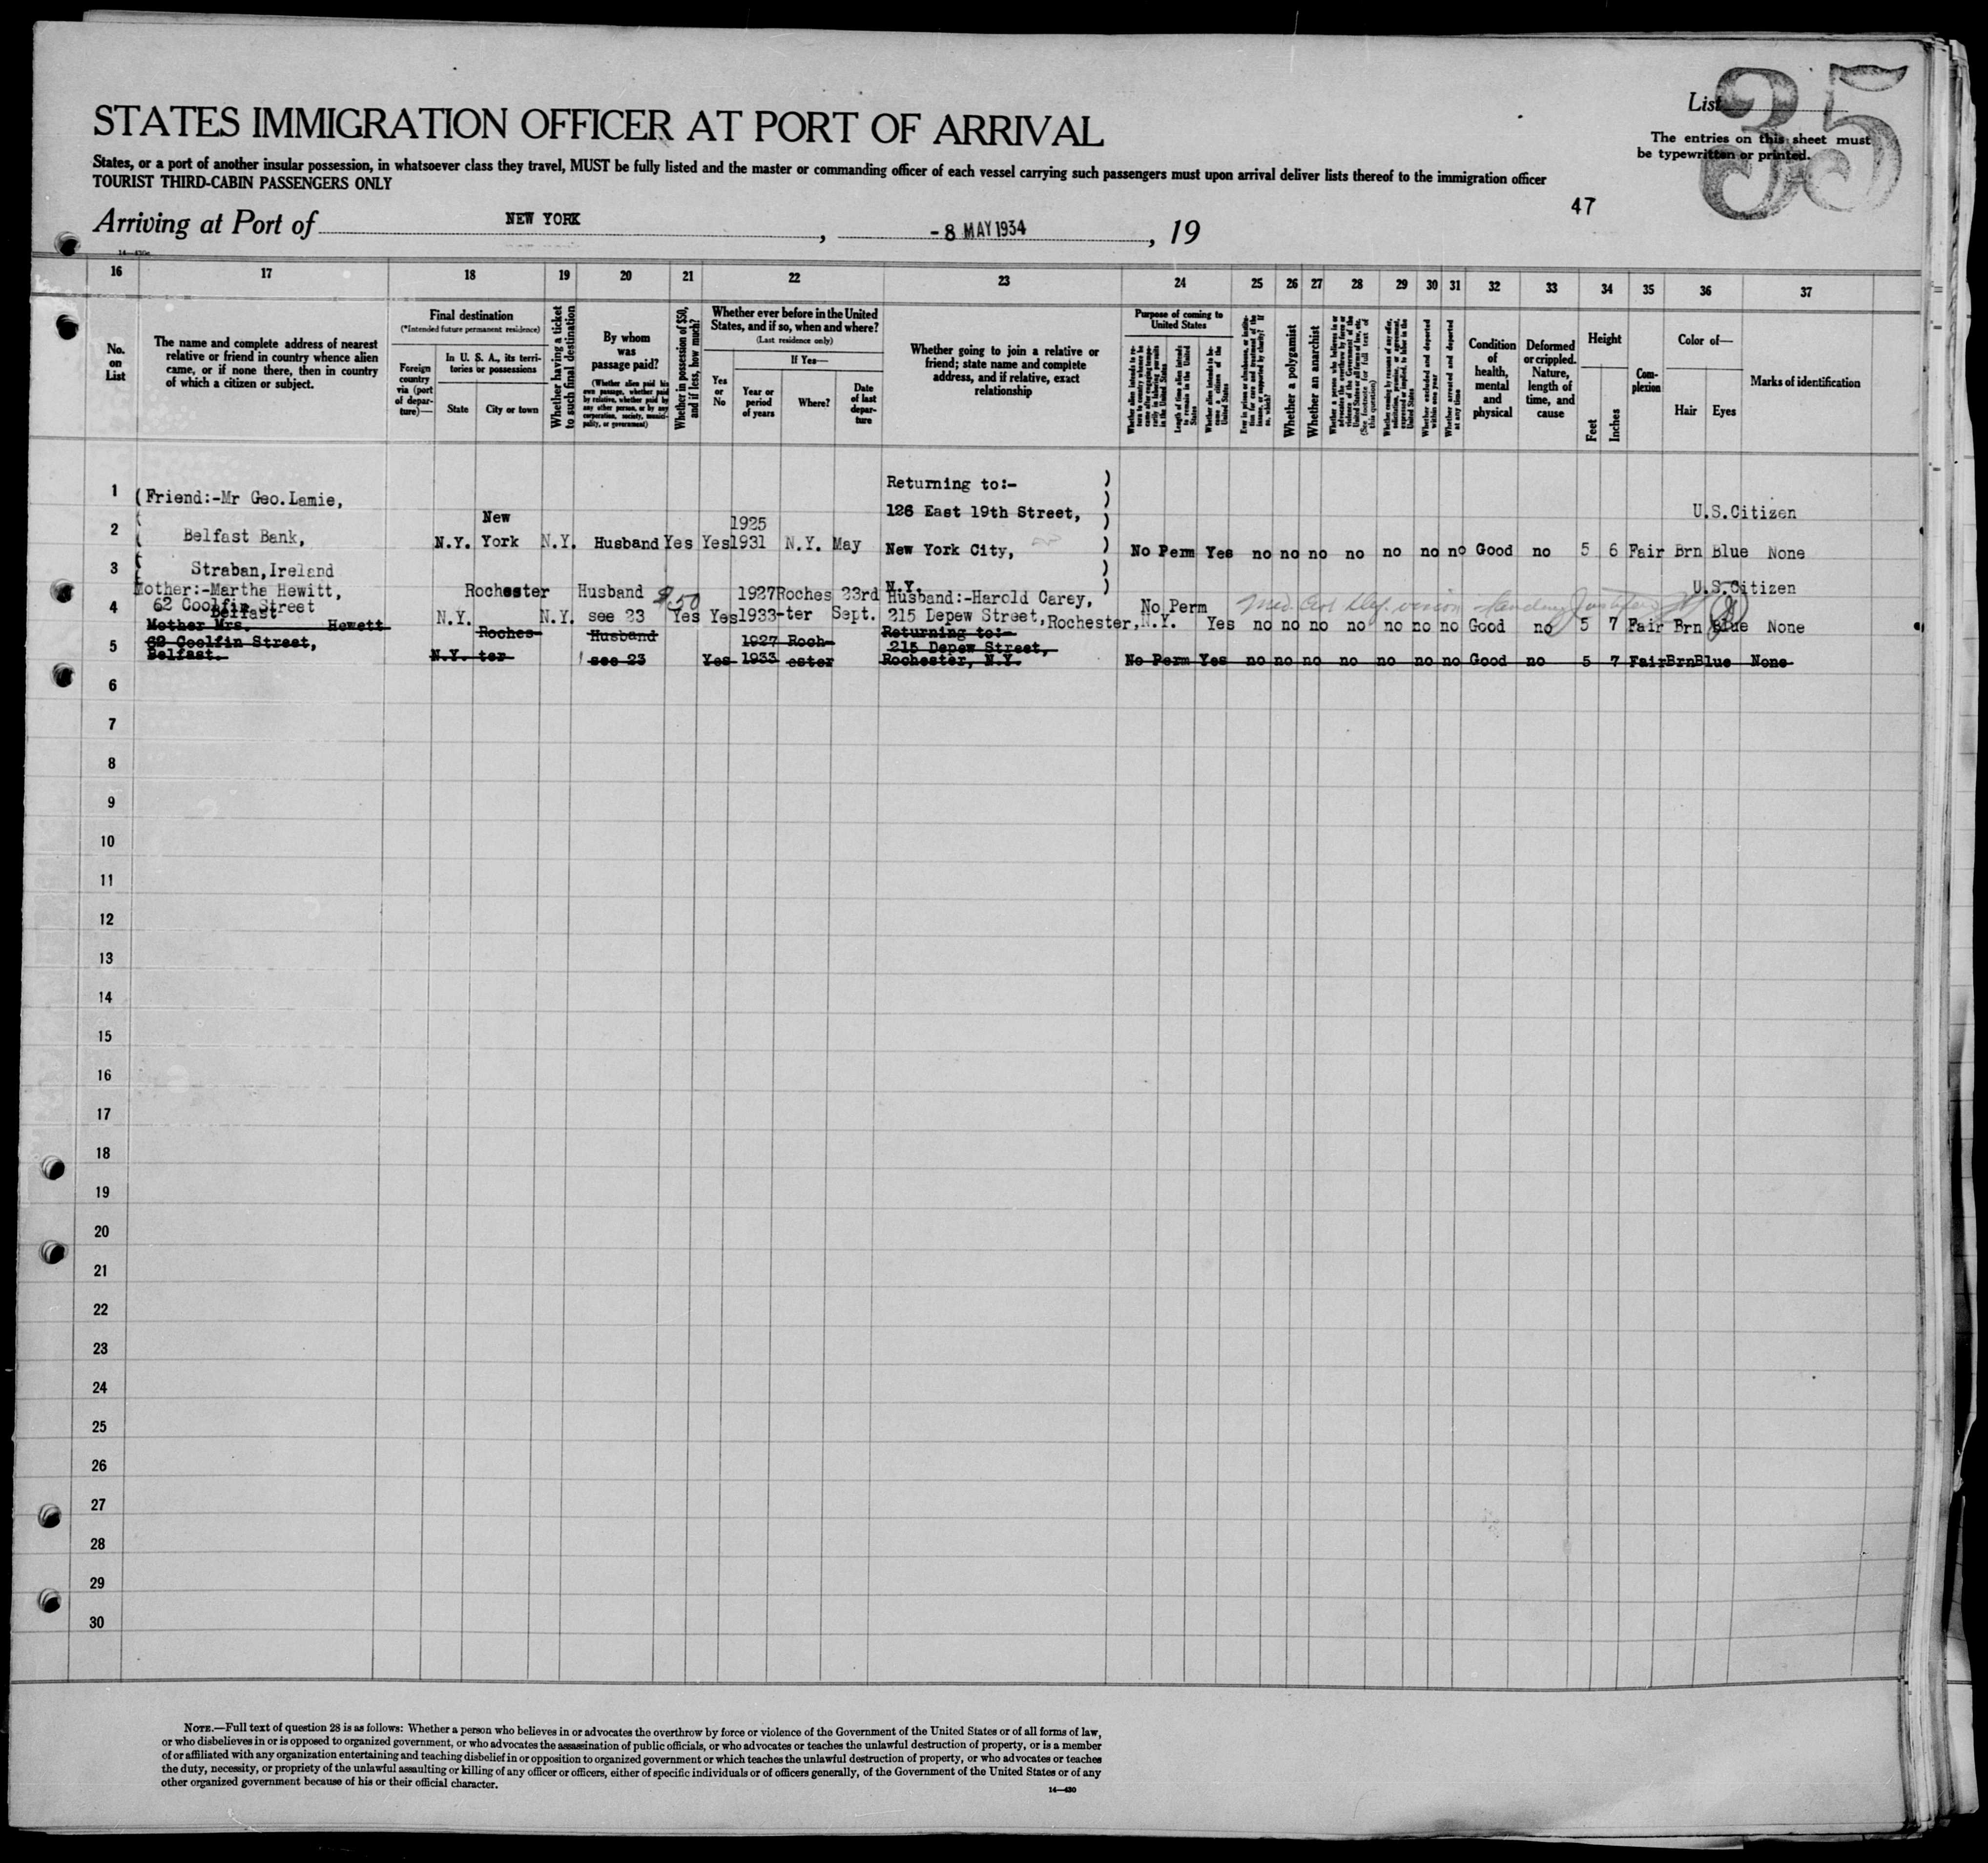 List
35
STATES IMMIGRATION OFFICER AT PORT OF ARRIVAL
The entries on this sheet must
be typewritten or printed.
States, or a port of another insular possession, in whatsoever class they travel, MUST be fully listed and the master or commanding officer of each vessel carrying such passengers must upon arrival deliver lists thereof to the immigration officer
TOURIST THIRD-CABIN PASSENGERS ONLY
47
Arriving at Port of NEW YORK, -8 MAY 1934, 19
16 17 18 19 20 21 22 23 24 25 26 27 28 29 30 31 32 33 34 35 36 37
No.
on
List
The name and complete address of nearest
relative or friend in country whence alien
came, or if none there, then in country
of which a citizen or subject.
Final destination
(*Intended future permanent residence)
Foreign
country
via (port
of depar-
ture)—
In U. S. A., its terri-
tories or possessions
State
City or town
Whether having a ticket
to such final destination
By whom
was
passage paid?
(Whether alien paid his
own passage, whether paid
by relative, whether paid by
any other person, or by any
corporation, society, munici-
pality, or government)
Whether in possession of $50,
and if less, how much?
Whether ever before in the United
States, and if so, when and where?
(Last residence only)
Yes
or
No
If Yes—
Year or
period
of years
Where?
Date
of last
depar-
ture
Whether going to join a relative or
friend; state name and complete
address, and if relative, exact
relationship
Purpose of coming to
United States
Whether alien intends to re-
turn to country whence he
came after engaging tempo-
rarily in laboring pursuits
in the United States
Length of time alien intends
to remain in the United
States
Whether alien intends to be-
come a citizen of the
United States
Whether a polygamist
Whether an anarchist
Whether excluded and deported
within one year
Whether arrested and deported
at any time
Condition
of
health,
mental
and
physical
Deformed
or crippled.
Nature,
length of
time, and
cause
Height
Feet
Inches
Com-
plexion
Color of—
Hair
Eyes
Marks of identification
1 (Friend:-Mr Geo.Lamie, Returning to:-
126 East 19th Street, U.S.Citizen
New 1925
2 Belfast Bank, N.Y. York N.Y. Husband Yes Yes 1931 N.Y. May New York City, No Perm Yes no no no no no no no Good no 5 6 Fair Brn Blue None
3 Straban,Ireland
N.Y. U.S.Citizen
Mother:-Martha Hewitt, Rochester Husband $50 1927 Roches 23rd Husband:-Harold Carey,
4 62 Coolfin Street N.Y. N.Y. see 23 Yes Yes 1933 -ter Sept. 215 Depew Street, Rochester, N.Y. No Perm Yes no no no no no no no Good no 5 7 Fair Brn Blue None
Belfast
Mother Mrs. Hewett Roches- Husband 1927 Roch- Returning to:-
5 62 Coolfin Street, 215 Depew Street,
Belfast. N.Y. ter see 23 Yes 1933 ester Rochester, N.Y. No Perm Yes no no no no no no no Good no 5 7 Fair Brn Blue None
6
7
8
9
10
11
12
13
14
15
16
17
18
19
20
21
22
23
24
25
26
27
28
29
30
NOTE.—Full text of question 28 is as follows: Whether a person who believes in or advocates the overthrow by force or violence of the Government of the United States or of all forms of law,
or who disbelieves in or is opposed to organized government, or who advocates the assassination of public officials, or who advocates or teaches the unlawful destruction of property, or is a member
of or affiliated with any organization entertaining and teaching disbelief in or opposition to organized government or which teaches the unlawful destruction of property, or who advocates or teaches
the duty, necessity, or propriety of the unlawful assaulting or killing of any officer or officers, either of specific individuals or of officers generally, of the Government of the United States or of any
other organized government because of his or their official character.
14—430